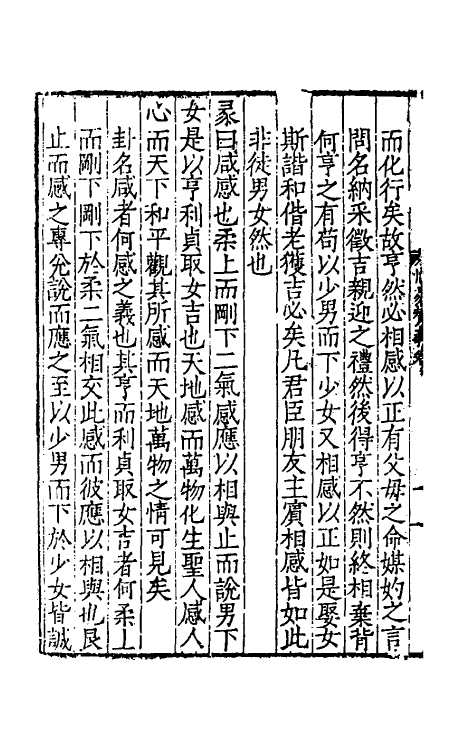 而化行矣故亨然必相感以正有父母之命媒妁之言
問名納采徵吉親迎之禮然後得亨不然則終相棄背
何亨之有苟以少男而下少女又相感以正如是娶女
斯諧和偕老獲吉必矣凡君臣朋友主賓相感皆如此
非徒男女然也
彖曰咸感也柔上而剛下二氣感應以相與止而說男下
女是以亨利貞取女吉也天地感而萬物化生聖人感人
心而天下和平觀其所感而天地萬物之情可見矣
卦名咸者何感之義也其亨而利貞取女吉者何柔上
而剛下剛下於柔二氣相交此感而彼應以相與也艮
止而感之專兌說而應之至以少男而下於少女皆誠